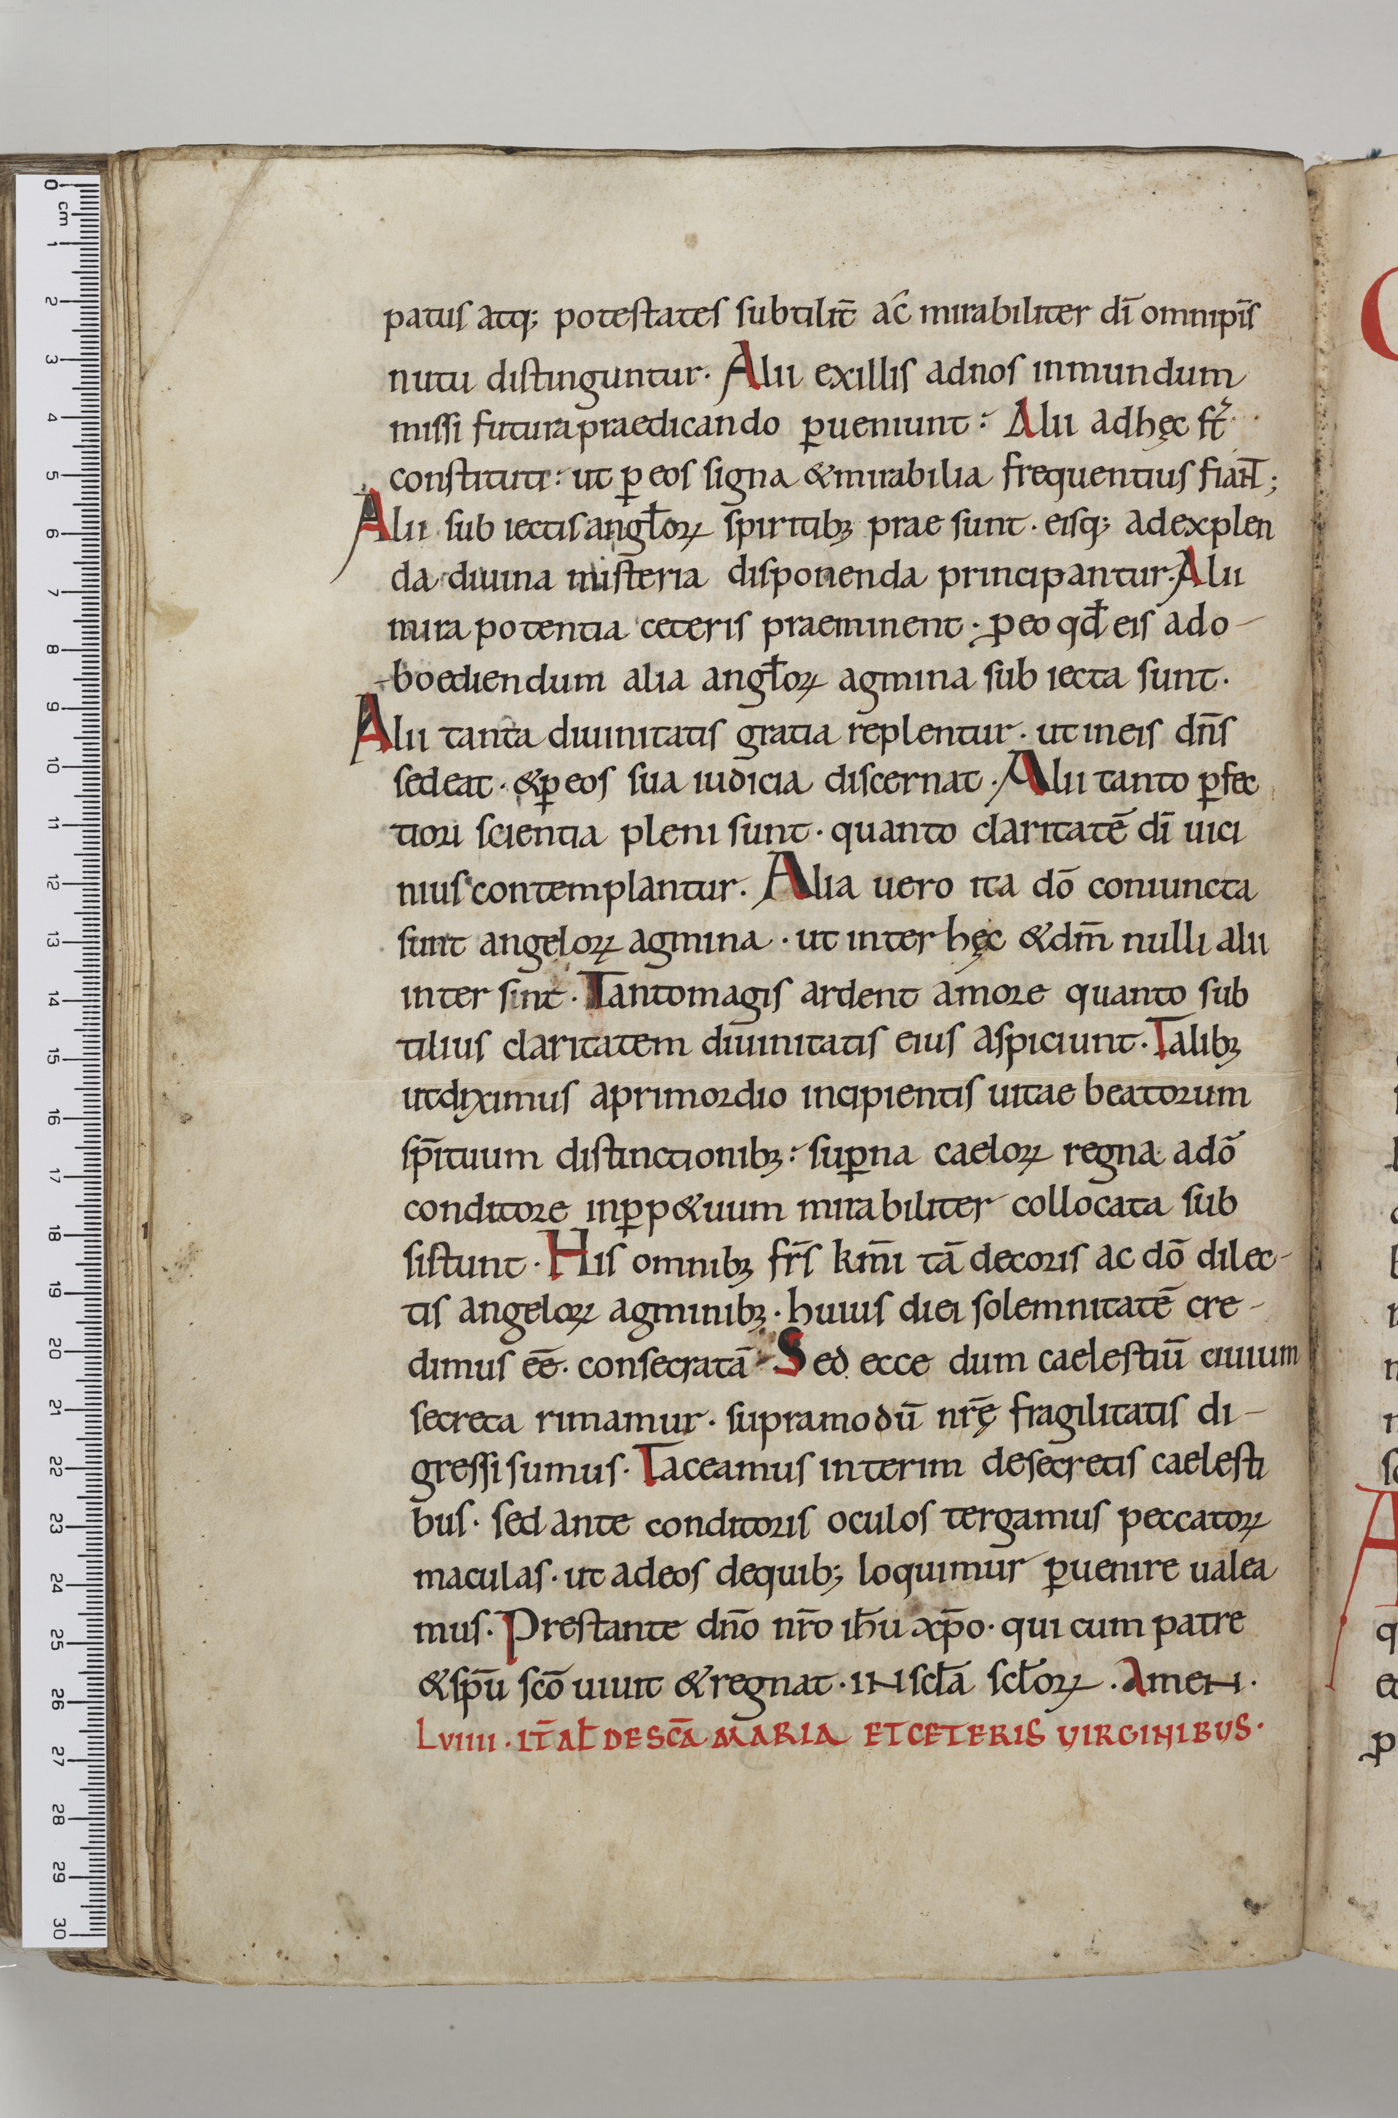 patus atq; potestates subtilit̄ ac̄ mirabiliter dī omnipt̄is
nutu distinguntur· Alii exillis adnos inmundum
missi futura praedicando ꝑueniunt: Alii adhęc
constituti: ut ꝑ eos signa &mirabilia frequentius fiant;
Alii sub iectis angłoꝝ spiritibꝫ prae sunt· eisq; adexplen
da diuina misteria disponenda principantur. Alii
mira potentia ceteris praeminent· ꝑ eo qđ eis ado-
boediendum alia angłoꝝ agmina sub iecta sunt·
Alii tanta diuinitatis gratia replentur· ut ineis dn̄s
sedeat· &ꝑ eos sua iudicia discernat· Alii tanto ꝑfec
tiori scientia pleni sunt· quanto claritatē dī uici
nius contemplantur. Alia uero ita dō coniuncta
sunt angeloꝝ agmina· ut inter hęc &dm̄ nulli alii
inter sint· Tantomagis ardent amore quanto sub
tilius claritatem diuinitatis eius aspiciunt· Talibꝫ
utdiximus aprimordio incipientis uitae beatorum
sp̄ituum distinctionibꝫ: suꝑna caeloꝝ regna adō
conditore inꝑp&uum mirabiliter collocata sub
sistunt· His omnibꝫ fr̄s km̄i tā decoris ac dō dilec-
tis angeloꝝ agminibꝫ· huius diei solemnitatē cre-
dimus eē· consecratā· Sed ecce dum caelestiū ciuium
secreta rimamur· supramodū nr̄ę fragilitatis di-
gressi sumus· Taceamus interim desecretis caelesti
bus· sed ante conditoris oculos tergamus peccatoꝝ
maculas· ut adeos dequib; loquimur ꝑuenire ualea
mus· Prestante dn̄o nr̄o ih̄u xp̄o· qui cum patre
&sp̄u scō uiuit &regnat· IN scła scłoꝝ· AmeN·
LVIIII· IT̄ Ał DE SC̄A MARIA ET CETERIS VIRGINIBVS·